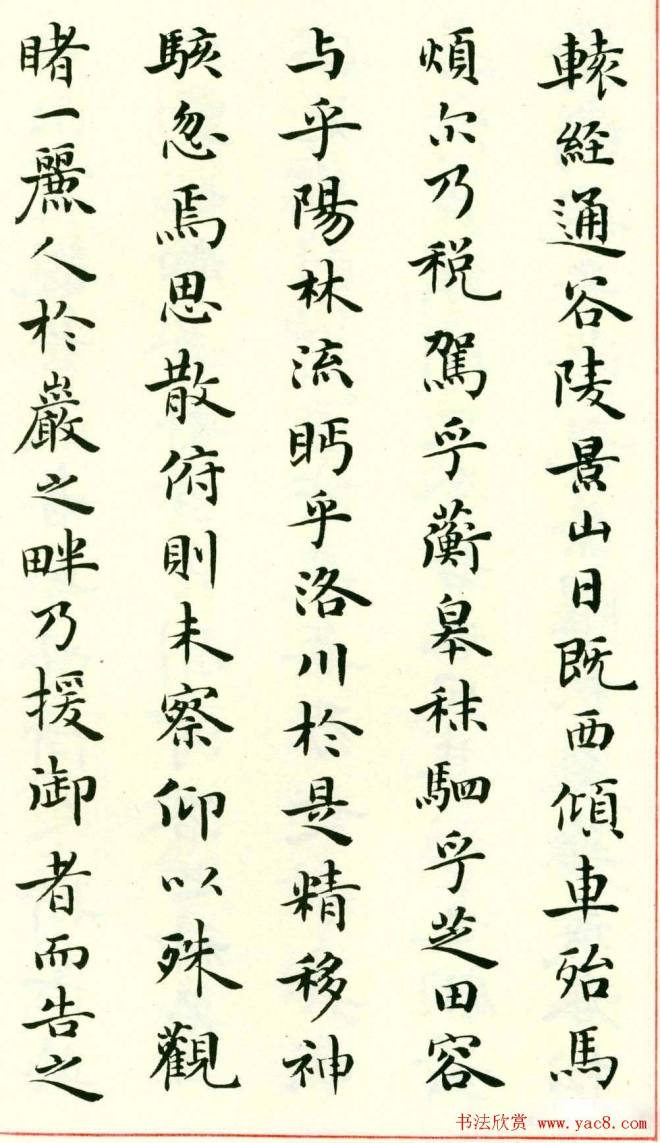 轅経通谷陵景山日既西傾車殆馬
煩尔乃税駕乎蘅皋秣駟乎芝田容
与乎陽林流眄乎洛川於是精移神
駭忽焉思散俯則未察仰以殊觀
睹一麗人於巖之畔乃援御者而告之
书法欣赏 www.yac8.com